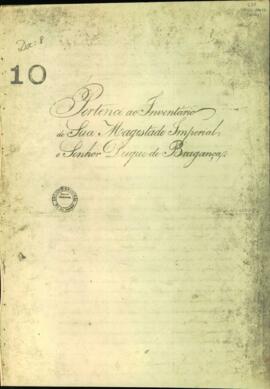 Doc: 8
10
Pertence ao Inventário
de Sua Magestade Imperial,
o Senhor Duque de Bragança,